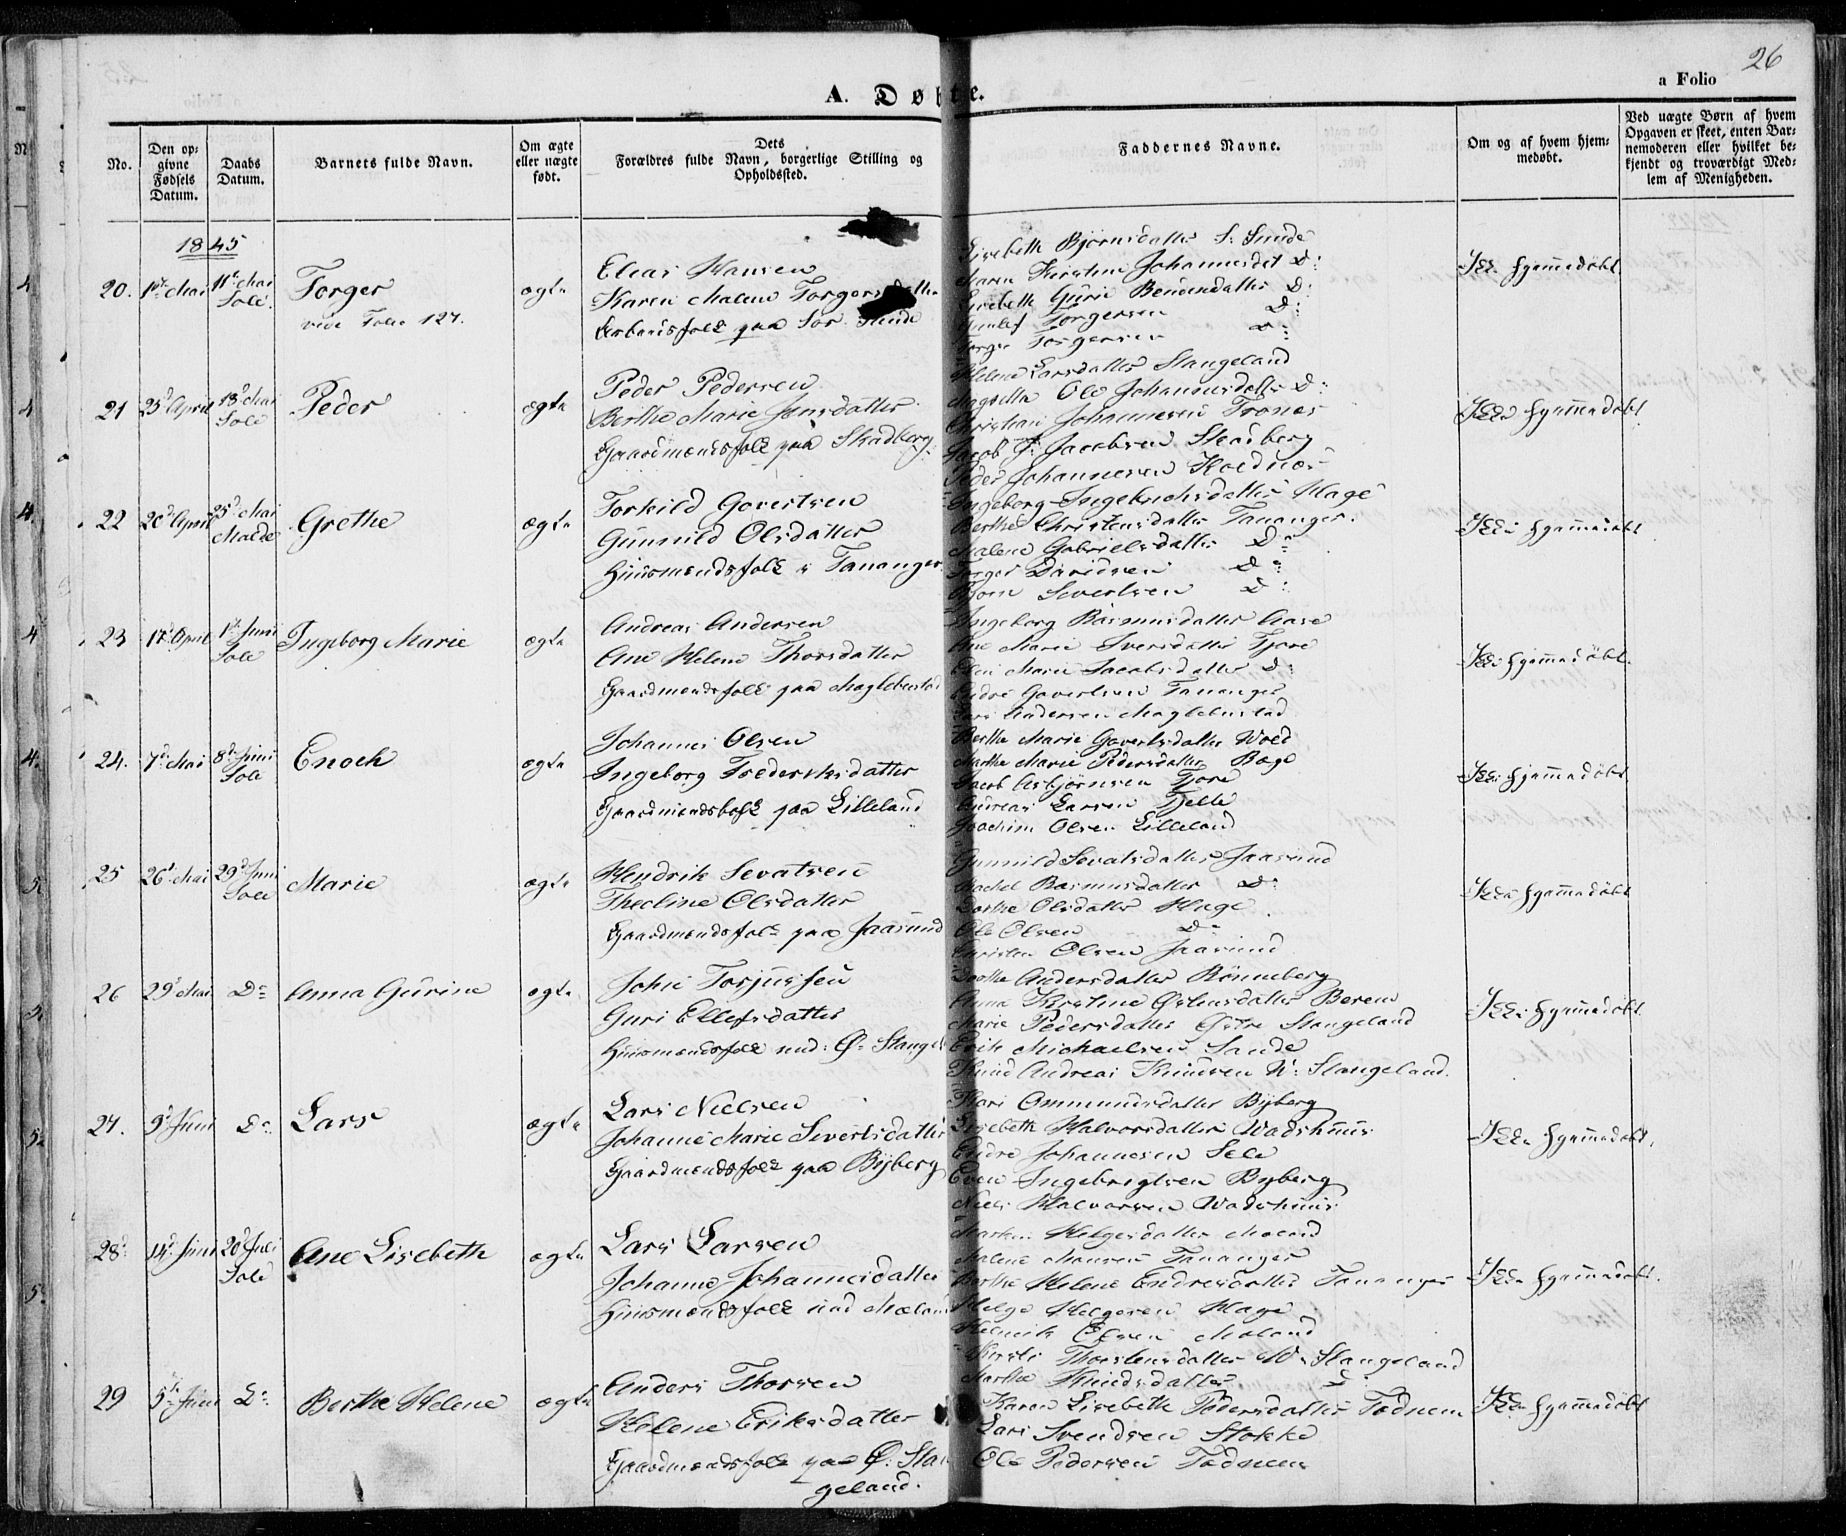 26
a Folio
A. Døbte.
No.
Den opgivne Fødsels Datum.
Daabs Datum.
Barnets fulde Navn.
Om ægte eller uægte født.
Dets Forældres fulde Navn, borgerlige Stilling og Opholdssted.
Faddernes Navne.
Om og af hvem hjemmedøbt.
Ved uægte Børn af hvem Opgaven er skeet, enten Barnemoderen eller hvilket bekjendt og troværdigt Medlem af Menigheden.
1845
20. 1ste Mai 11te Mai Sole Torger ægte
vide Folio 127.
Elias Hansen
Karen Malene Torgersdatter
paa Sør Sunde
Lisebeth Bjørnsdatter S: Sunde
Maren Kirstine Johannesdt D:
Lisebeth Gurie Bendensdatter D:
Torgersen D:
Torger Torgersen D:
Ikke hjemmedøbt
21 23d April 13d Mai Sole Peder ægte
Peder Pedersen
Berthe Marie Jansdatter
Gaardmandsfolk paa Skadberg.
Helene Larsdatter Stangeland
Magretha Ole Johannesdatter D:
Christian Johannesen Trones
Jacob J. Jacobsen Skadberg
Peder Johannesen Koldnes
Ikke hjemmedøbt
22 20d April 25d Mai Malde Grethe ægte
Torkild Govertsen
Gunnild Olsdatter
Huusmandsfolk i Tananger.
Ingeborg Ingebrethsdatter Hage
Berthe Christensdatter Tananger.
Malene Gabrielsdatter D:
Torger Davidsen D:
Bjørn Sivertsen D:
Ikke hjemmedøbt
23 17d April 1ste Juni Sole Ingeborg Marie ægte
Andreas Andersen
Ane Helene Thorsdatter
Gaardmandsfolk paa Maglebustad
Ingeborg Rasmusdatter Aase
Ane Marie Sversdatter Tjore
Elen Marie Jacobsdatter D:
Endre Govertsen Tananger
Lars Andersen Maglebustad
Ikke hjemmedøbt.
24. 7d Mai 8d Juni Sole Enoch ægte
Johannes Olsen
Ingeborg Frederiksdatter
Gaardmandsfolk paa Lilleland
Berthe Marie Govertsdatter Wold
Marthe Marie Pedersdatter Bøge
Jacob Asbjørnsen Tjore
Andreas Larsen Tjelle
Joachim Olsen Lilleland
Ikke hjemmedøbt
25 26d Mai 29d Juni Sole Marie ægte
Hendrik Sevatsen
Thecline Olsdatter
Gaardmandsfolk paa Jaasund
Gunnild Sevatsdatter Jaasund
Rachel Rasmusdatter D:
Dorthe Olsdatter Hage
Ole Olsen D:
Christen Olsen Jaasund
Ikke hjemmedøbt
26 29d Mai Do Anna Gurine ægte
John Torjussen
Guri Ellefsdatter
Huusmandsfolk und: Ø: Stangel
Dorthe Andersdatter Rønneberg
Anna Kirstine Østensdatter Beren
Marie Pedersdatter Østre Stangeland
Erik Michaelsen Sande
Knud Andreas Knudsen W: Stangeland.
Ikke hjemmedøbt
27. 9d Juni Do Lars ægte
Lars Nielsen
Johanne Marie Sivertsdatter
Gaardmandsfolk paa Byberg
Kari Ommundsdatter Byberg
Lisebeth Halvorsdatter Wadshuus
Endre Johannesen Sele
Even Ingebrigtsen Byberg
Niels Halvorsen Wadshuus
Ikke hjemmedøbt.
28 14d Juni 20d Juli Sole Ane Lisebeth ægte
Lars Larsen
Johanne Johannesdatter
Huusmandsfolk und Mæland
Helgesdatter Mæland
Malene Tananger
Berthe Helene Endresdatter Tananger
Helge Helgesen Hage
Henrik Olsen Mæland
Ikke hjemmedøbt.
29 5te Juni Do Berthe Helene ægte
Anders Thorsen
Helene Eriksdatter
Gaardmandsfolk paa Ø: Stangeland.
Kirsti Thorstensdatter W: Stangeland
Marthe Knudsdatter D:
Karen Lisebeth Pedersdatter Todnem
Lars Svendsen Stokke
Ole Pedersen Todnem
Ikke hjemmedøbt